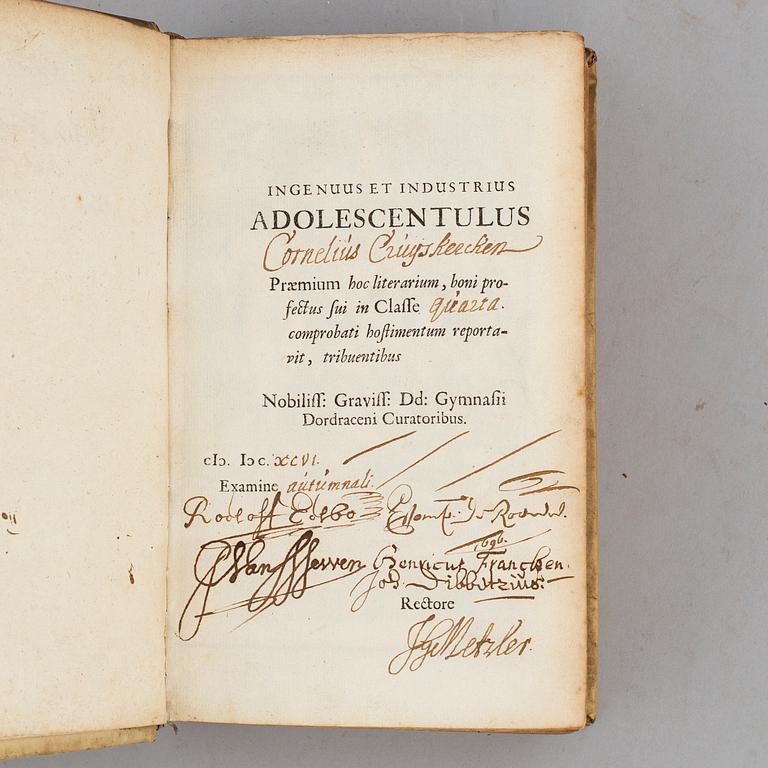 INGENUUS ET INDUSTRIUS
ADOLESCENTULUS
Cornelius Cruyskercken
Præmium hoc literarium, boni pro-
fectus sui in Classe quarta.
comprobati hostimentum reporta-
vit, tribuentibus
Nobiliss: Graviss: Dd: Gymnasii
Dordraceni Curatoribus.
cIↄ. Iↄ c. XCVI.
Examine autumnali.
Roeloff Eelbo
1696.
Henricus Francken.
Joh. Dibbetzius.
Rectore
Metzler.